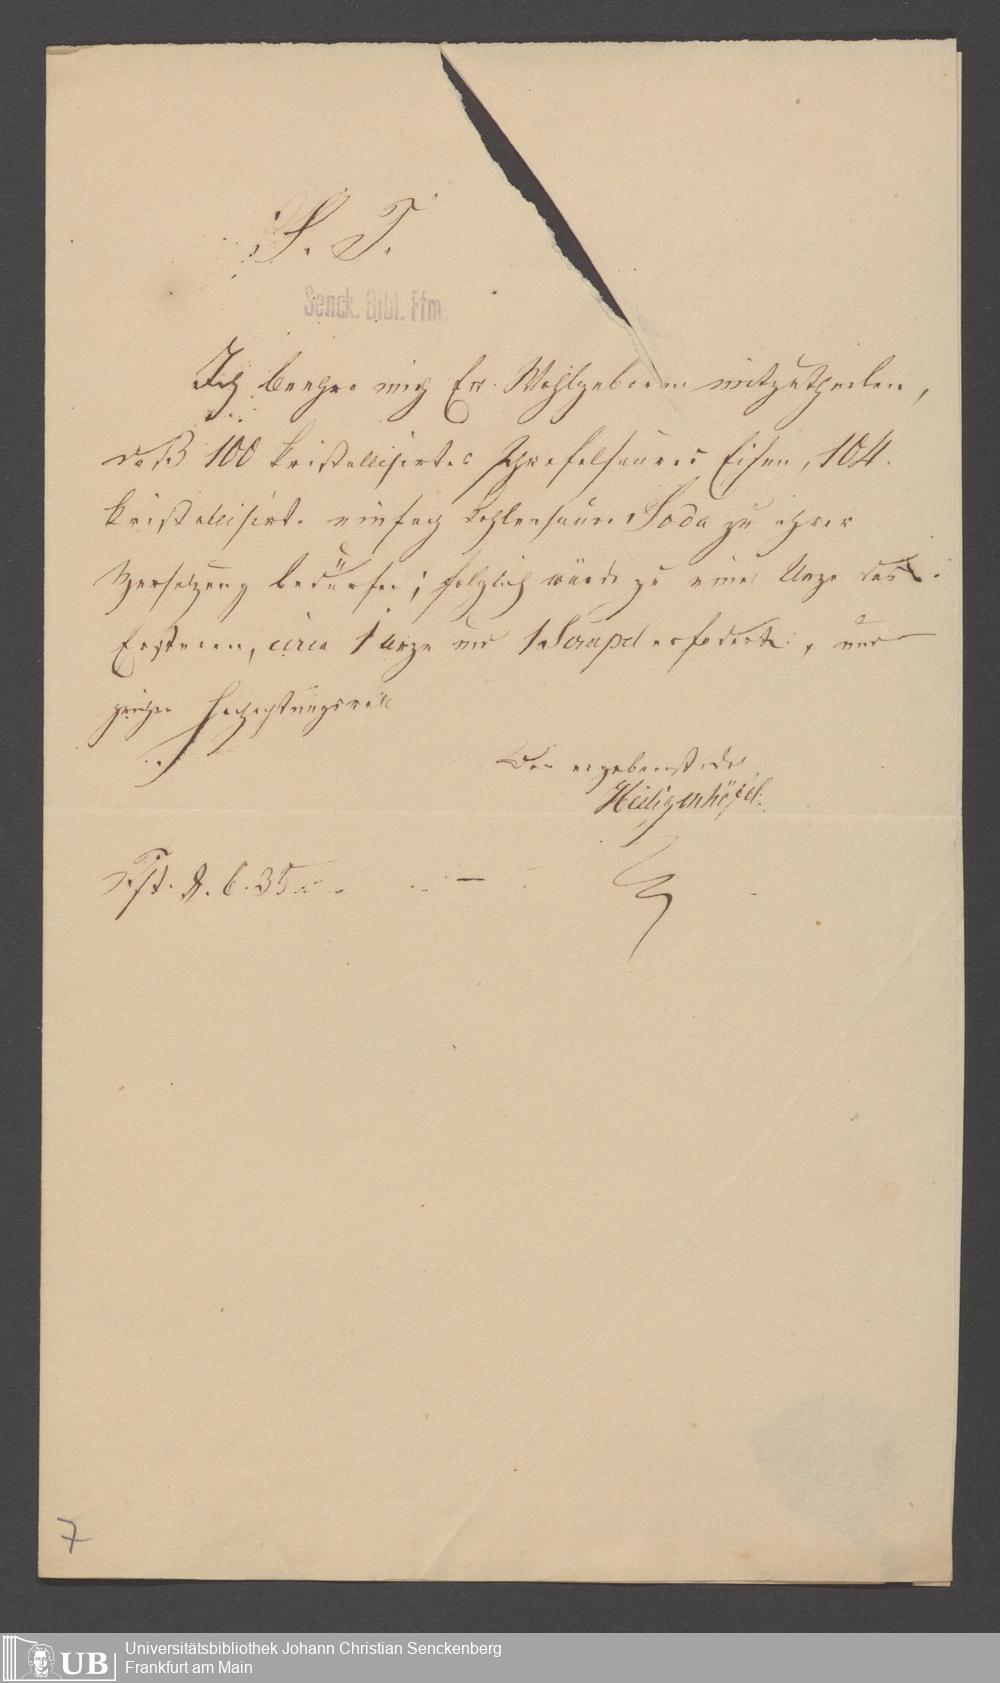 S. T.
Senck. Bibl. Ffm.
Ich beehre mich Ew. Wohlgeboren mitzutheilen,
daß 100 kristallisirtes schwefelsaures Eisen, 104.
kristallisirte einfach kohlensaure Soda zu ihrer
Zersetzung bedürfen; folglich würde zu einer Unze des
Ersteren, circa 1 Unze und 1 Scrupel erfodert, und
Hochachtungsvoll
ergebenster
Heiligenhöfel
6. 35
7
UB
Universitätsbibliothek Johann Christian Senckenberg
Frankfurt am Main